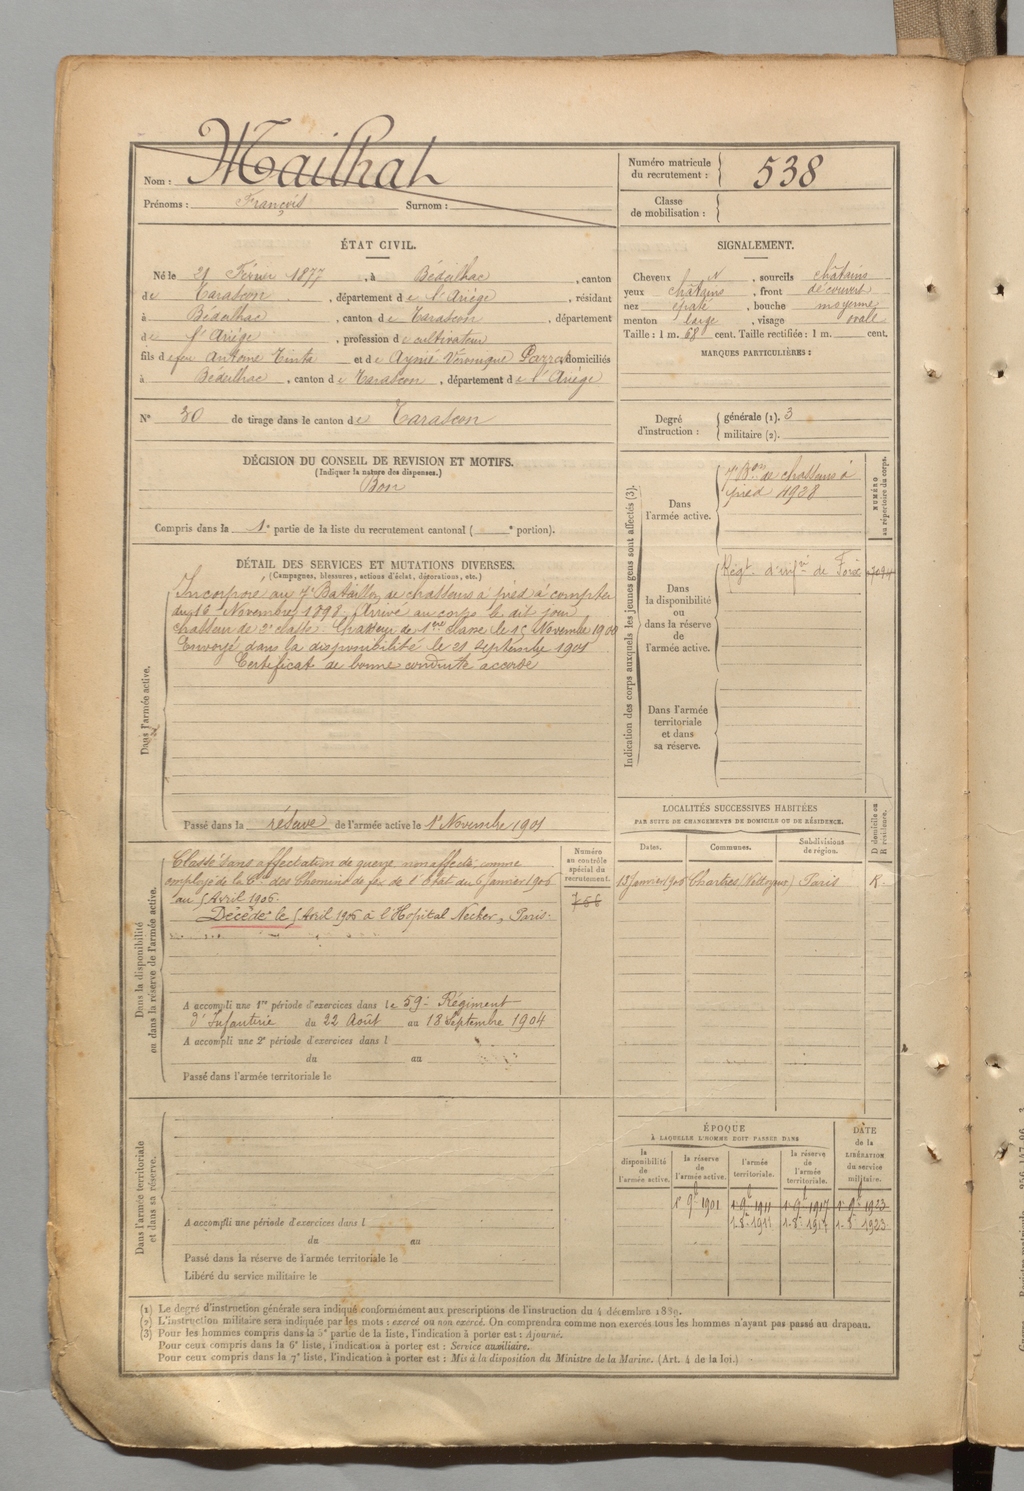 Nom : Mailhat
Prénoms : François Surnom :
Numéro matricule du recrutement : 538
Classe de mobilisation :
ÉTAT CIVIL.
Né le 21 Février 1877, à Bédeilhac, canton
de Tarascon, département de l'Ariège, résidant
à Bédeilhac, canton de Tarascon, département
de l'Ariège, profession de cultivateur
fils de feu Antoine Tinta et de Véronique domiciliés
à Bédeilhac, canton de Tarascon, département de l'Ariège
N° 30 de tirage dans le canton de Tarascon
SIGNALEMENT.
Cheveux N, sourcils châtains
yeux châtains, front découvert
nez épaté, bouche moyenne
menton large, visage ovale
Taille : 1 m. 68 cent. Taille rectifiée : 1 m. cent.
MARQUES PARTICULIÈRES :
Degré d'instruction : générale (1). 3
militaire (2).
DÉCISION DU CONSEIL DE REVISION ET MOTIFS.
(Indiquer la nature des dispenses.)
Bon
Compris dans la 1e partie de la liste du recrutement cantonal ( e portion).
DÉTAIL DES SERVICES ET MUTATIONS DIVERSES.
(Campagnes, blessures, actions d'éclat, décorations, etc.)
Dans l'armée active.
Incorporé au 7e Bataillon de chasseurs à pied à compter
du 16 Novembre 1898, Arrivé au corps le dit jour
chasseur de 2e classe. Chasseur de 1ère classe le 15 Novembre 1900
Envoyé dans la disponibilité le 21 Septembre 1901
Certificat de bonne conduite accordé
Passé dans la réserve de l'armée active le 1er Novembre 1901
Indication des corps auxquels les jeunes gens sont affectés (3).
NUMÉRO au répertoire du corps.
Dans l'armée active.
7e Bon de chasseurs à
pied 4938
Dans la disponibilité ou dans la réserve de l'armée active.
Régt d'infie de Foix
Dans l'armée territoriale et dans sa réserve.
LOCALITÉS SUCCESSIVES HABITÉES
PAR SUITE DE CHANGEMENTS DE DOMICILE OU DE RÉSIDENCE.
Dates. Communes. Subdivisions de région. D domicile ou R résidence.
13 Janvier 1906 Chartres (Nettoyeur) Paris R.
Dans la disponibilité ou dans la réserve de l'armée active.
Numéro au contrôle spécial du recrutement.
766
Classé sans affectation de guerre, non affecté, comme
employé de la Cie des Chemins de fer de l'Etat du 6 Janvier 1906
au 5 Avril 1906.
Décédé le 5 Avril 1906 à l'Hôpital Necker, Paris.
A accompli une 1re période d'exercices dans le 59e Régiment
d'Infanterie du 22 Août au 18 Septembre 1904
A accompli une 2e période d'exercices dans l
du au
Passé dans l'armée territoriale le
Dans l'armée territoriale et dans sa réserve.
A accompli une période d'exercices dans l
du au
Passé dans la réserve de l'armée territoriale le
Libéré du service militaire le
ÉPOQUE
À LAQUELLE L'HOMME DOIT PASSER DANS
DATE de la LIBÉRATION du service militaire.
la disponibilité de l'armée active. la réserve de l'armée active. l'armée territoriale. la réserve de l'armée territoriale.
1er 9bre 1901 1er 9bre 1911 1er 9bre 1917 1er 9bre 1923
1-8-1911 1-8-1917 1-8-1923
(1) Le degré d'instruction générale sera indiqué conformément aux prescriptions de l'instruction du 4 décembre 1889.
(2) L'instruction militaire sera indiquée par les mots : exercé ou non exercé. On comprendra comme non exercés tous les hommes n'ayant pas passé au drapeau.
(3) Pour les hommes compris dans la 5e partie de la liste, l'indication à porter est : Ajourné.
Pour ceux compris dans la 6e liste, l'indication à porter est : Service auxiliaire.
Pour ceux compris dans la 7e liste, l'indication à porter est : Mis à la disposition du Ministre de la Marine. (Art. 4 de la loi.)